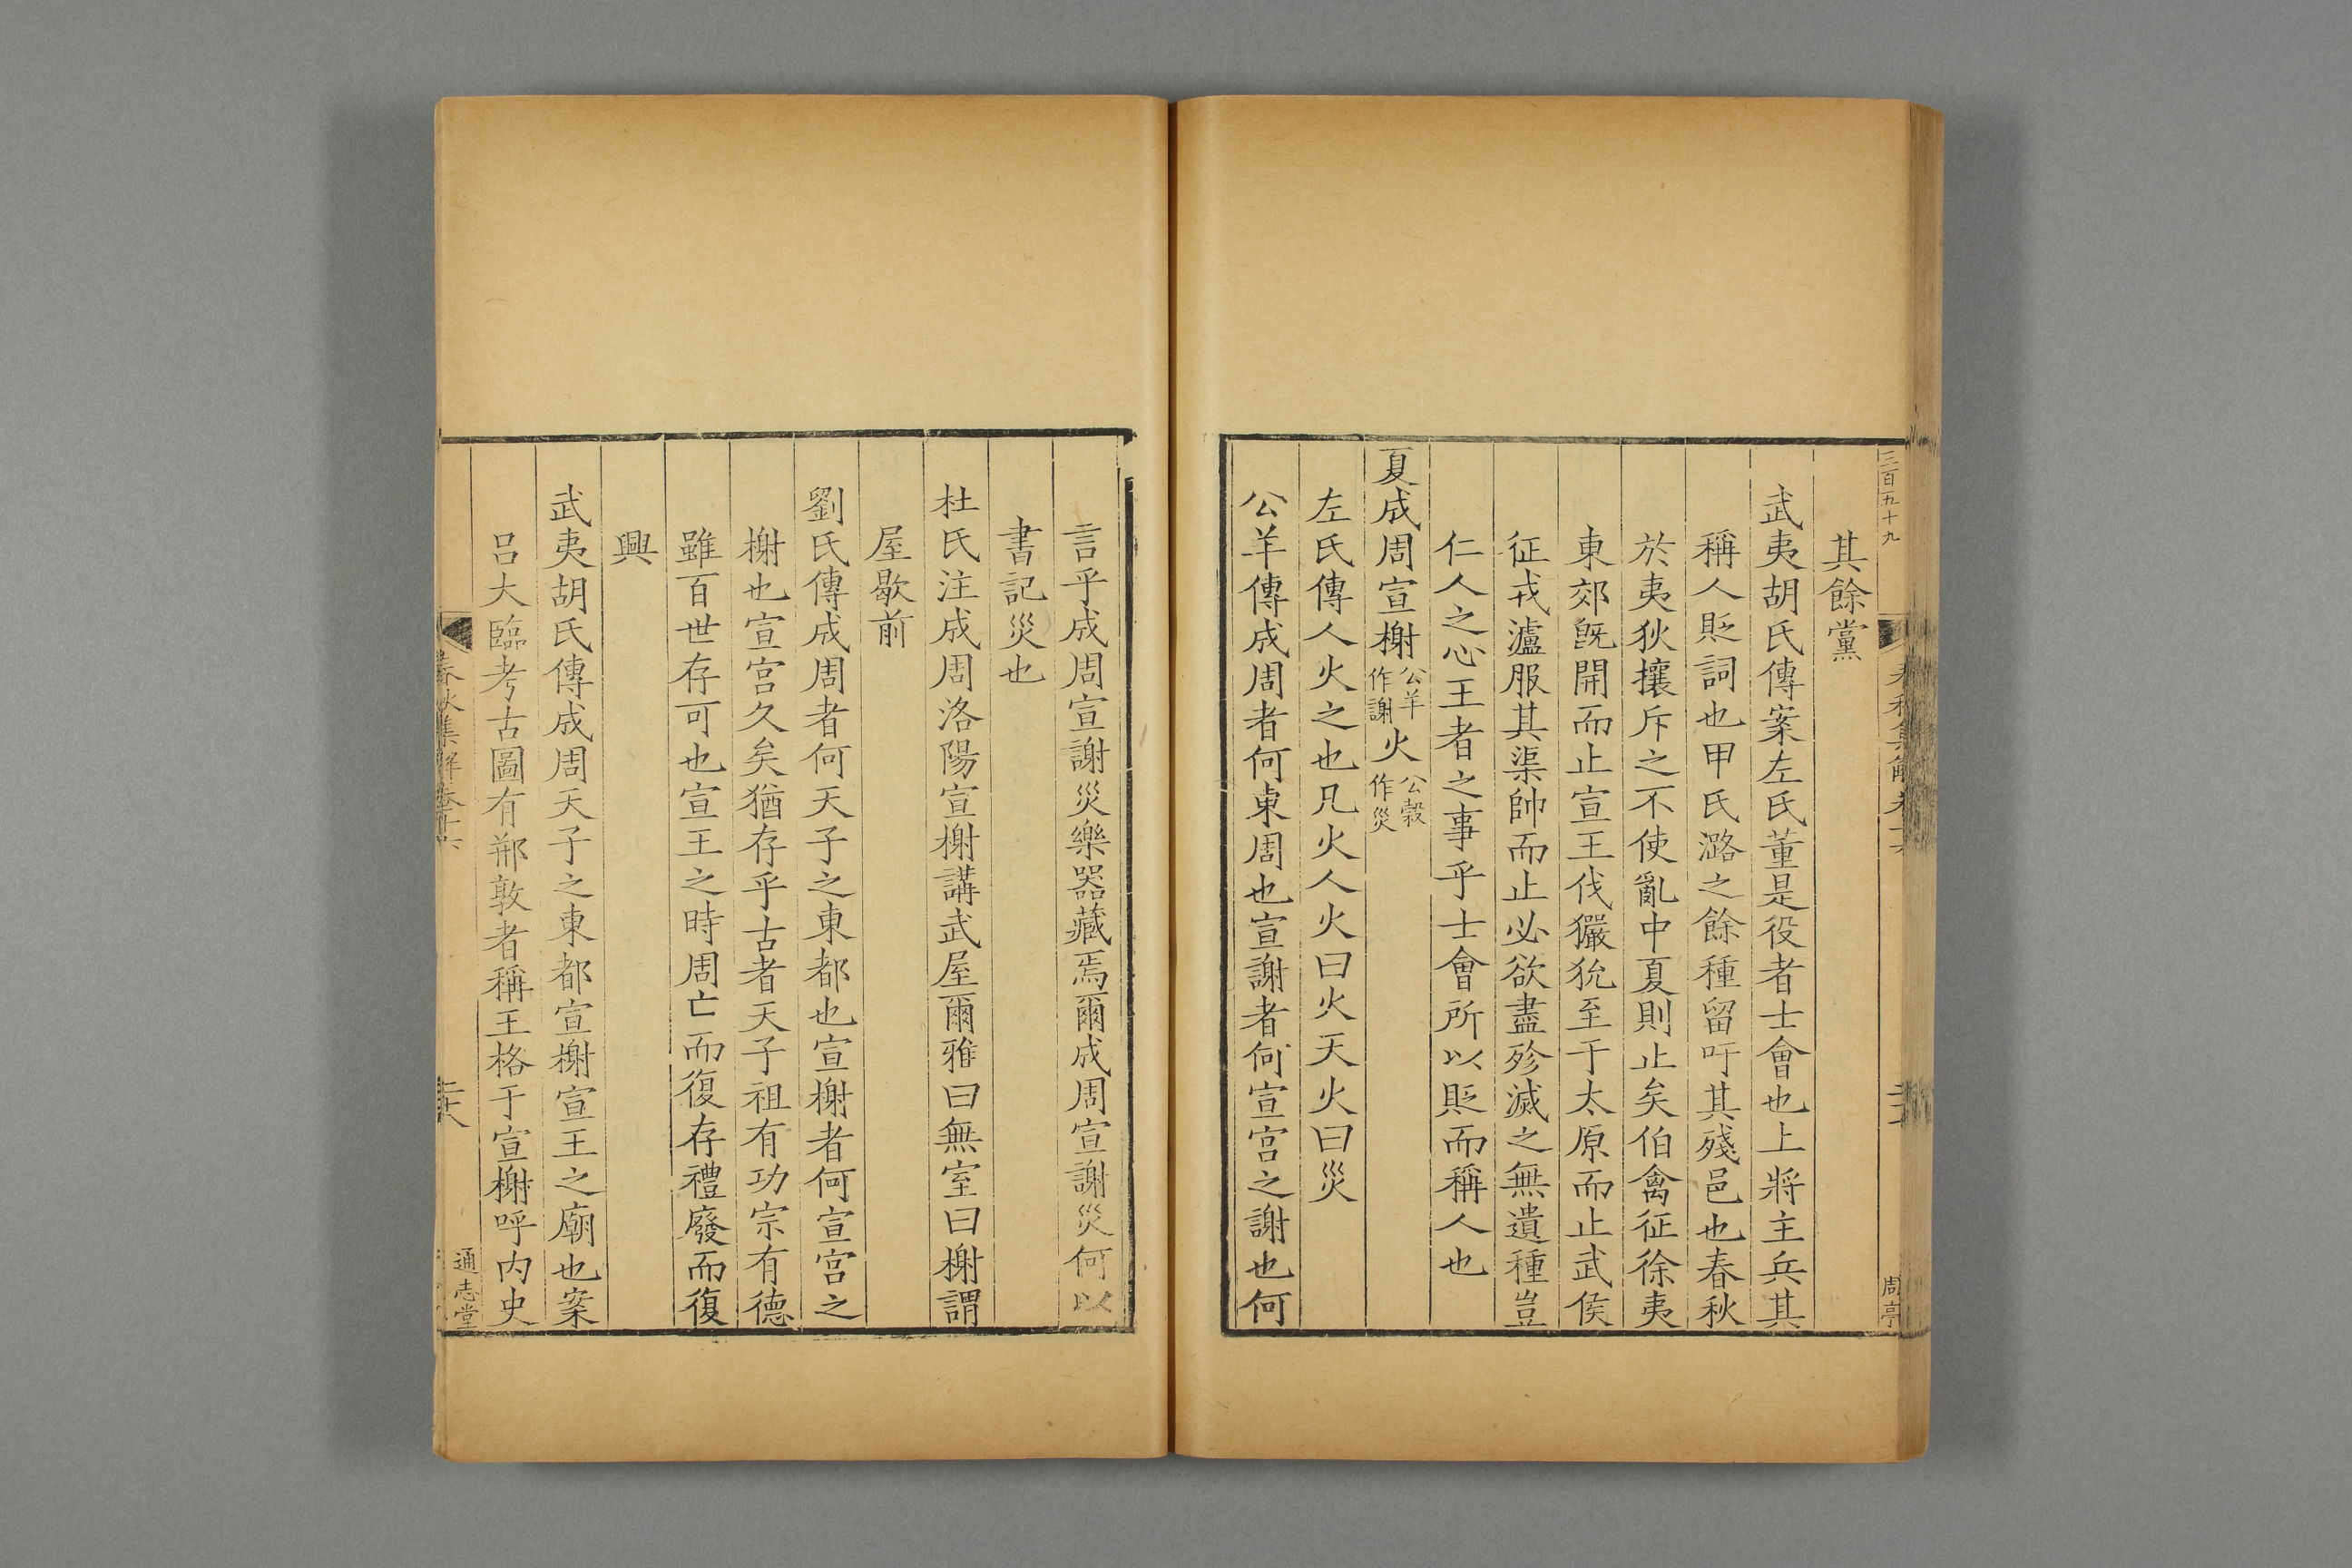 三百五十九
周亭
其餘黨
武夷胡氏傳案左氏董是役者士會也上將主兵其
稱人貶詞也甲氏潞之餘種留吁其殘邑也春秋
於夷狄攘斥之不使亂中夏則止矣伯禽征徐夷
東郊既開而止宣王伐玁狁至于太原而止武侯
征戎瀘服其渠帥而止必欲盡殄滅之無遺種豈
仁人之心王者之事乎士會所以貶而稱人也
夏成周宣榭公羊作謝火公穀作災
左氏傳人火之也凡火人火曰火天火曰災
公羊傳成周者何東周也宣謝者何宣宮之謝也何
言乎成周宣謝災樂器藏焉爾成周宣謝災何以
書記災也
杜氏注成周洛陽宣榭講武屋爾雅曰無室曰榭謂
屋歇前
劉氏傳成周者何天子之東都也宣榭者何宣宮之
榭也宣宮久矣猶存乎古者天子祖有功宗有德
雖百世存可也宣王之時周亡而復存禮廢而復
興
武夷胡氏傳成周天子之東都宣榭宣王之廟也案
呂大臨考古圖有䣙敦者稱王格于宣榭呼內史
春秋集解卷十六
通志堂